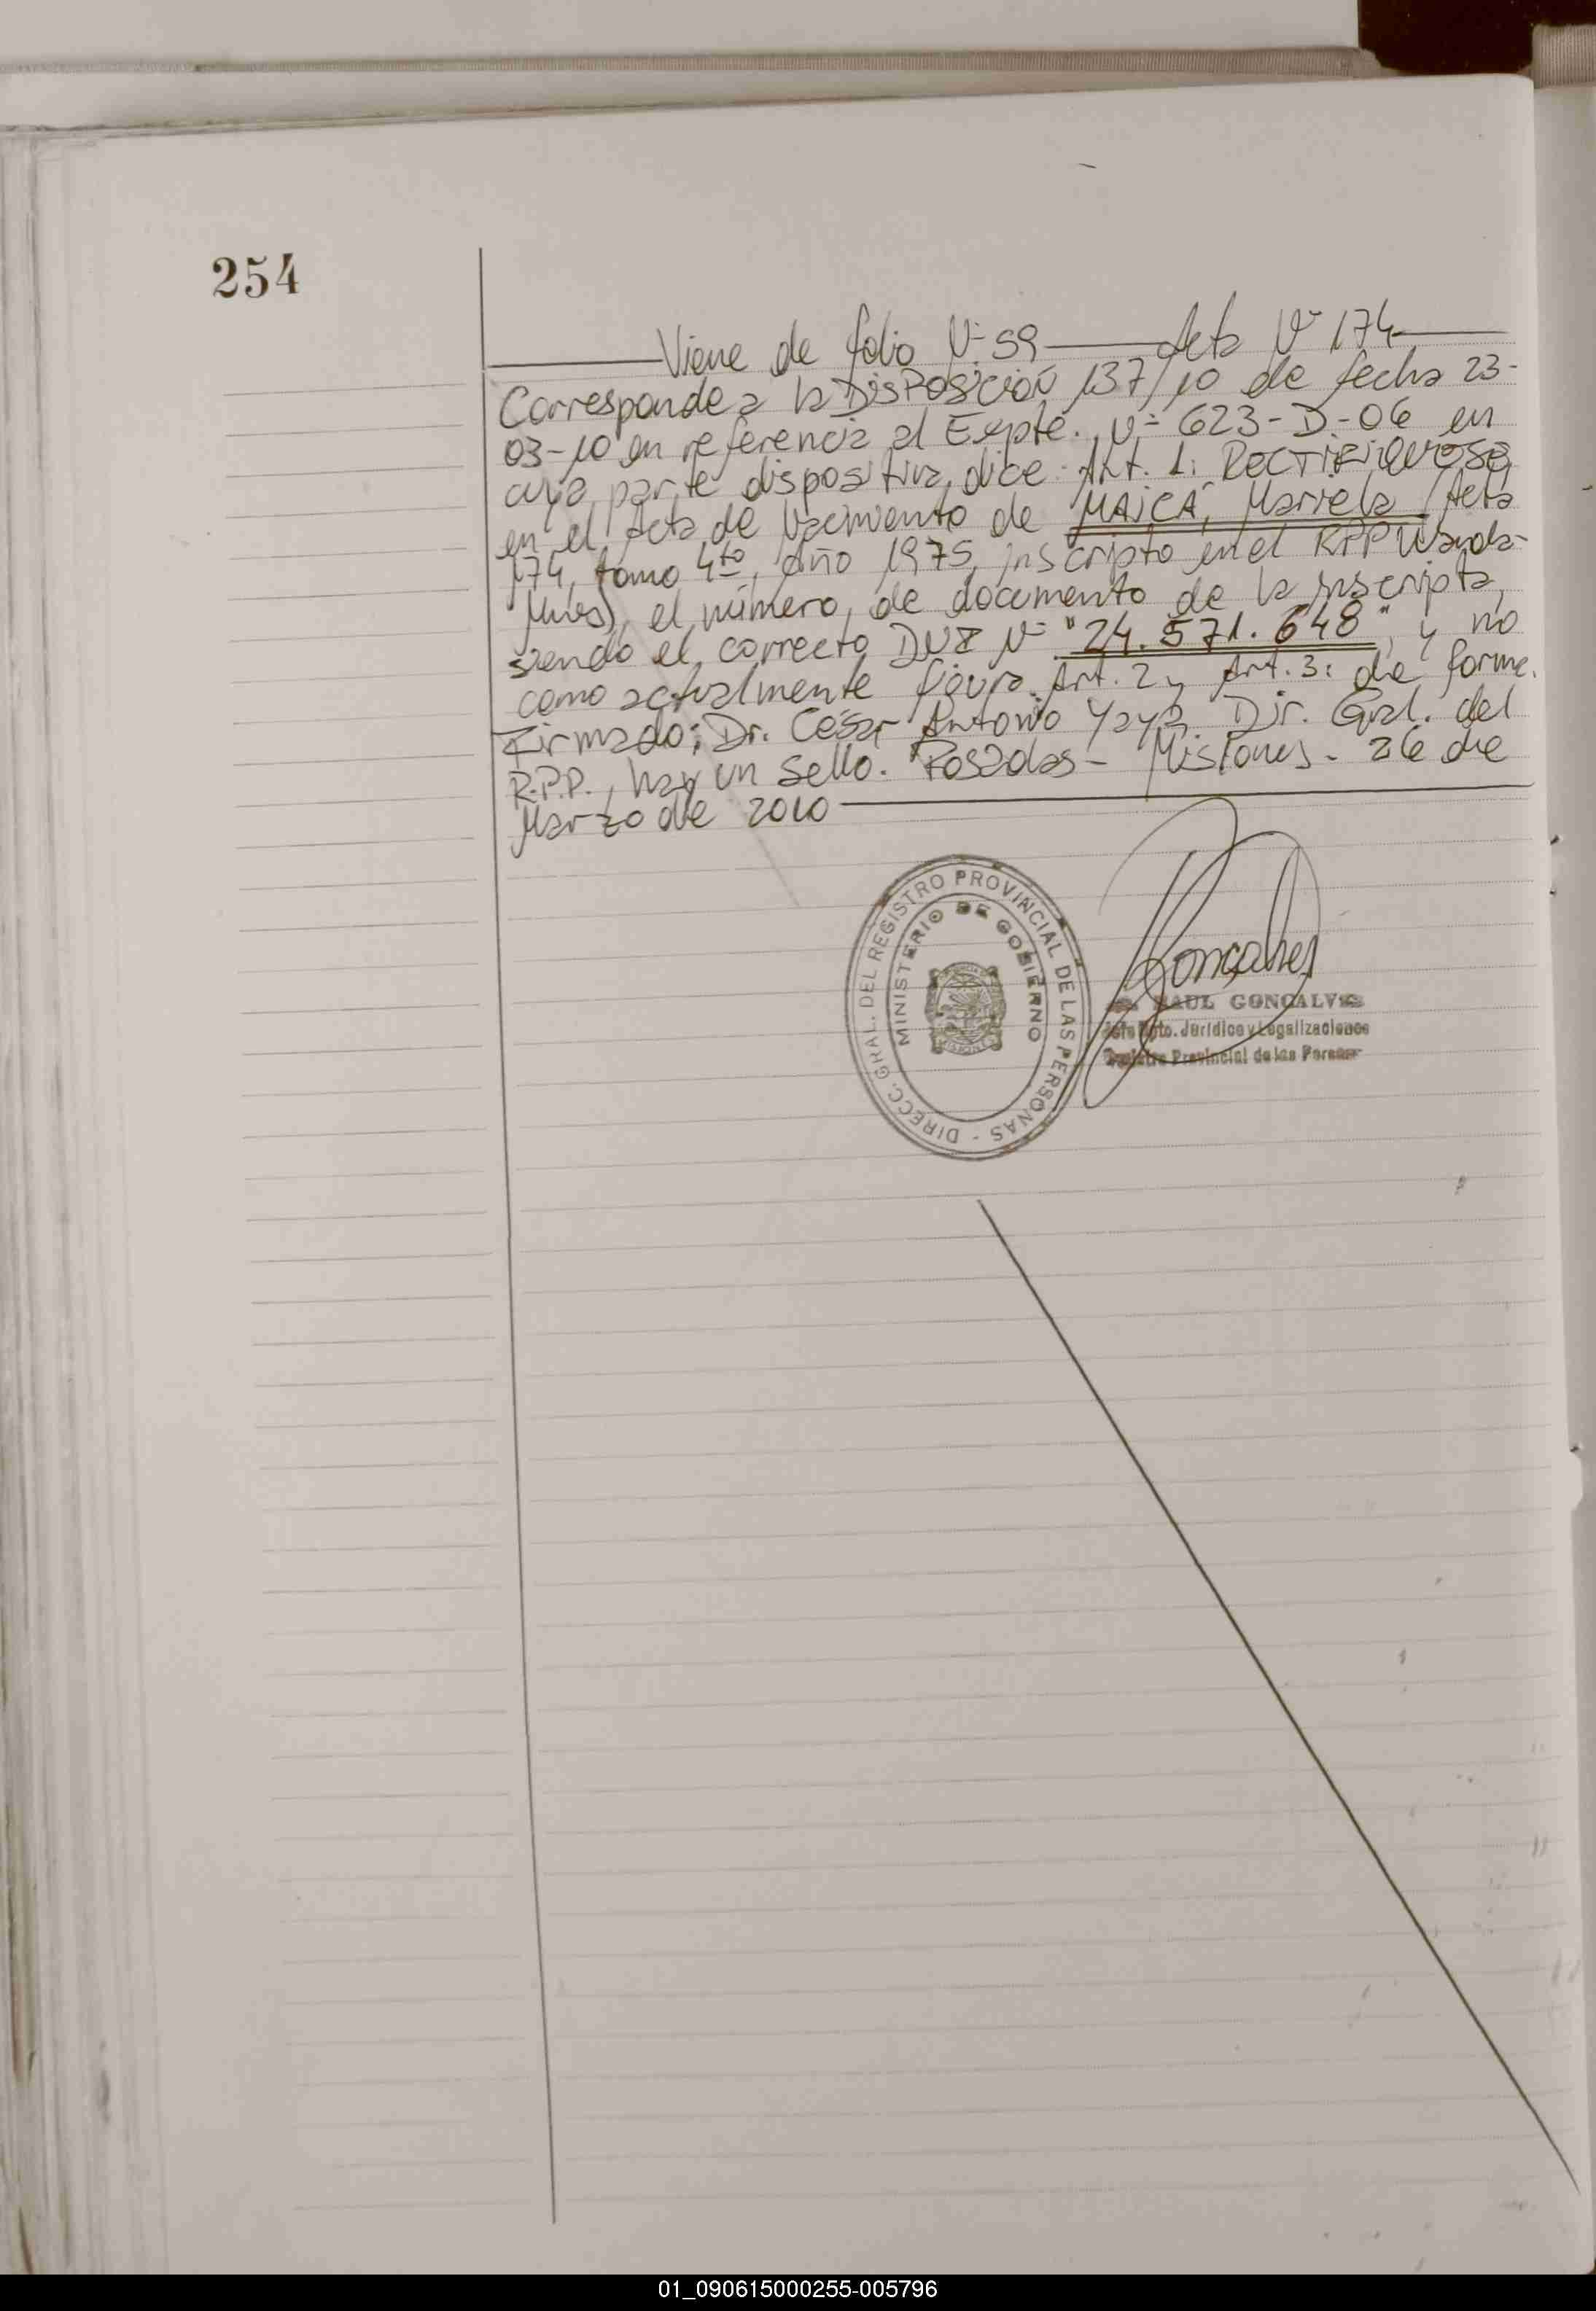 254
Viene de folio Nº 59 Acta Nº 174
Corresponde a la DISPOSICIÓN 137/10 de fecha 23-
03-10 en referencia al Expte. Nº 623-D-06 en
cuya parte dispositiva dice: Art. 1: RECTIFIQUESE
en el Acta de Nacimiento de MAICÁ, Mariela (Acta
174, tomo 4to, Año 1975, inscripto en el RPP Wanda-
Mnes), el número de documento de la inscripta,
siendo el correcto DNI Nº "24.571.648", y no
como actualmente figura. Art. 2 y Art. 3: de forma.
Firmado: Dr. César Antonio Yaya Dir. Gral. del
R.P.P., hay un sello. Posadas - Misiones - 26 de
Marzo de 2010
DIRECC. GRAL. DEL REGISTRO PROVINCIAL DE LAS PERSONAS -
MINISTERIO DE GOBIERNO
MISIONES
Goncalves
RAUL GONCALVES
Jefe Dpto. Jurídico y Legalizaciones
Registro Provincial de las Personas
01_090615000255-005796